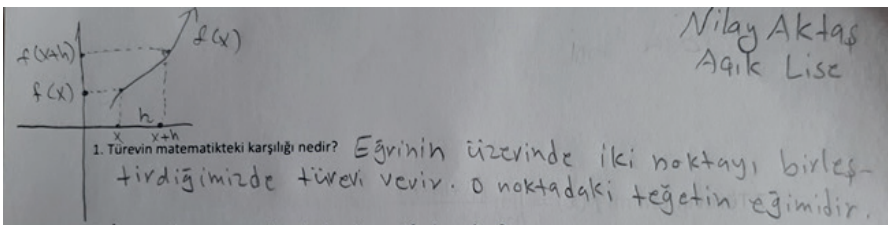 Nilay Aktaş
Açık Lise
f(x+h)
f(x)
f(x)
h
x
x+h
1. Türevin matematikteki karşılığı nedir? Eğrinin üzerinde iki noktayı birleş-
tirdiğimizde türevi verir. O noktadaki teğetin eğimidir.